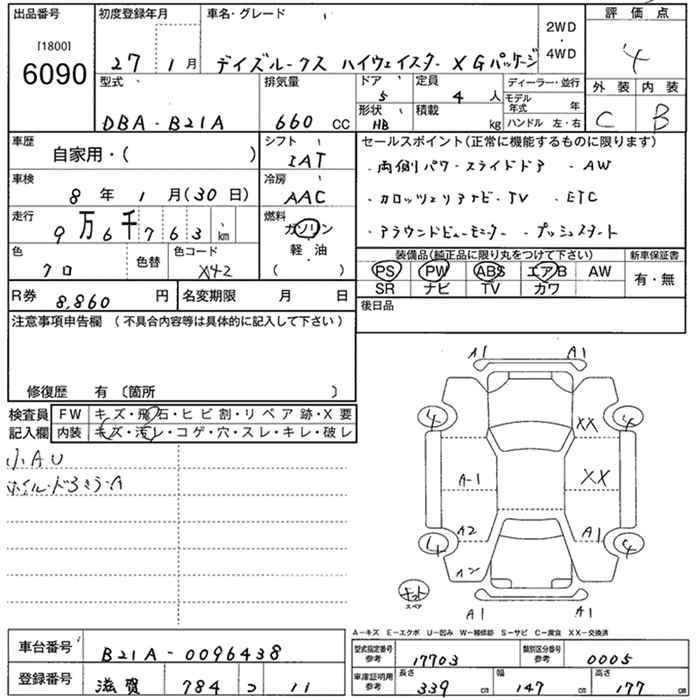 出品番号 初度登録年月 車名・グレード 評価点
[1800]
6090
27年 1月 デイズルークス ハイウェイスター X Gパッケージ 2WD・4WD 4
型式 排気量 ドア 定員 ディーラー・並行 外装 内装
DBA-B21A 660 CC 5 4人 モデル年式 年 C B
形状 HB 積載 kg ハンドル 左・右
車歴 シフト セールスポイント(正常に機能するものに限ります)
自家用・( ) IAT ・両側パワースライドドア ・AW
車検 冷房
8年 1月(30日) AAC ・カロッツェリアナビ・TV ・ETC
走行 燃料
9万6千763km ガソリン ・アラウンドビューモニター ・プッシュスタート
軽・油
( )
色 色替 色コード 装備品(純正品に限り丸をつけて下さい) 新車保証書
クロ X42 PS PW ABS エアB AW 有・無
SR ナビ TV カワ
R券 8,860円 名変期限 月 日 後日品
注意事項申告欄 (不具合内容等は具体的に記入して下さい)
修復歴 有 〔箇所 〕
検査員 FW キズ・飛石・ヒビ割・リペア跡・X要
記入欄 内装 キズ・汚レ・コゲ・穴・スレ・キレ・破レ
小AU
A1 A1
4 XX 4
A-1 XX
A2 A1
4 4
キット
スペア
A1 A1
A−キズ E−エクボ U−凹み W−補修跡 S−サビ C−腐食 XX−交換済
車台番号 B21A-0096438
型式指定番号 参考 17703 類別区分番号 参考 0005
登録番号 滋賀 784 コ 11
車庫証明用 参考 長さ 339 cm 幅 147 cm 高さ 177 cm